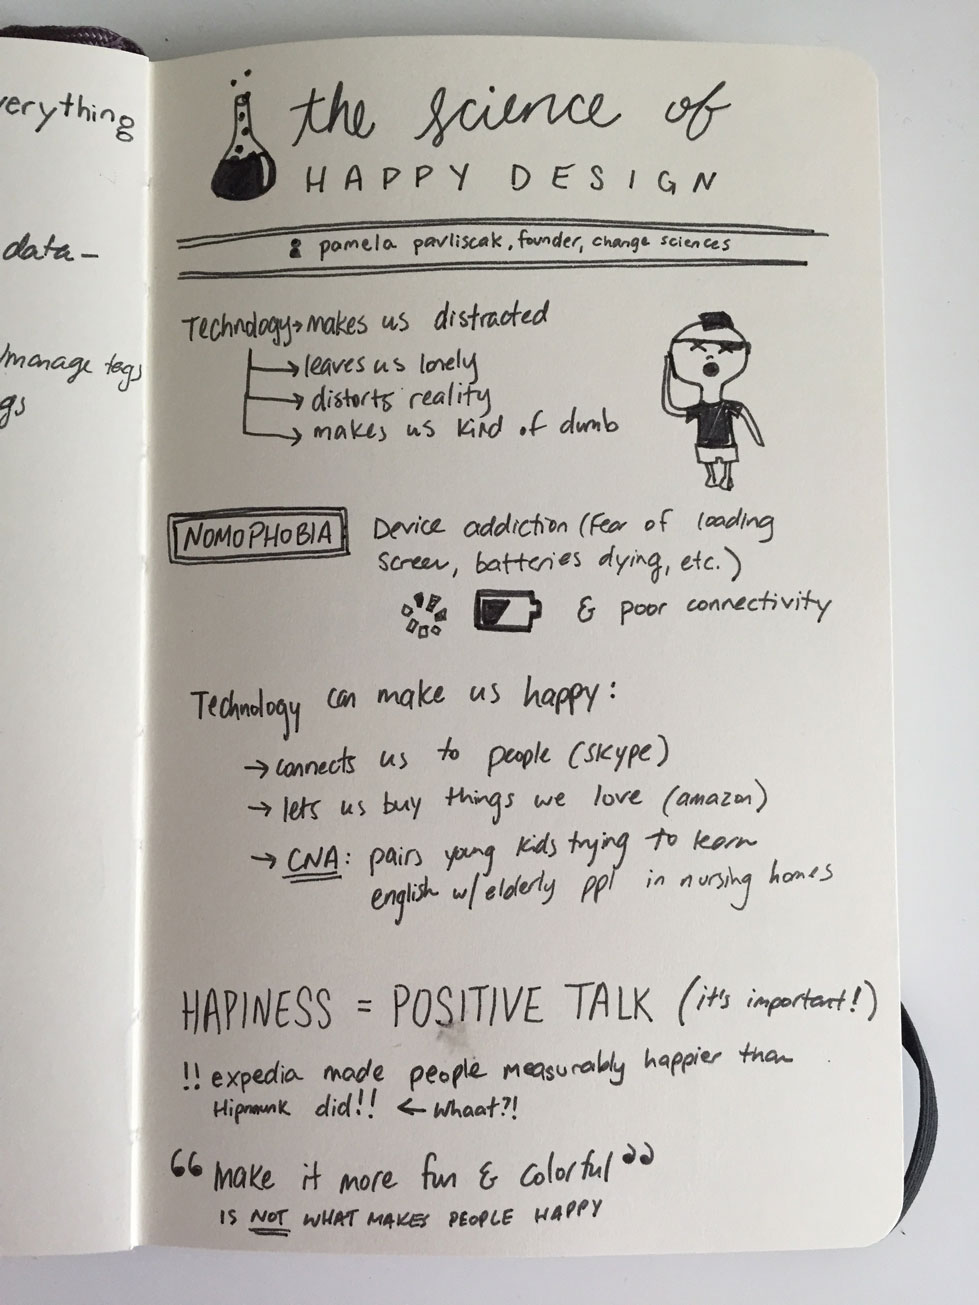 verything
data –
/manage tags
gs
the science of
HAPPY DESIGN
pamela pavliscak, founder, change sciences
Technology → makes us distracted
→ leaves us lonely
→ distorts reality
→ makes us kind of dumb
NOMOPHOBIA
Device addiction (fear of loading
screen, batteries dying, etc.)
& poor connectivity
Technology can make us happy:
→ connects us to people (skype)
→ lets us buy things we love (amazon)
→ CNA: pairs young kids trying to learn
english w/ elderly ppl in nursing homes
HAPINESS = POSITIVE TALK (it's important!)
!! expedia made people measurably happier than
Hipmunk did!! ← whaat?!
“make it more fun & colorful”
IS NOT WHAT MAKES PEOPLE HAPPY